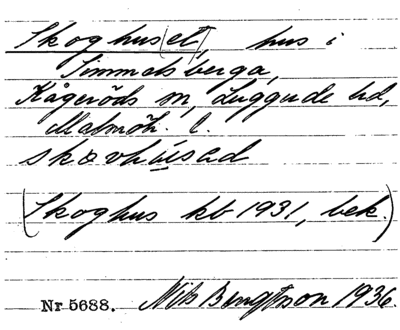 Skoghus(et), hus i
Simmelsberga,
Kågeröds sn, Luggude hd,
Malmöh. l.
skovhúsad
(Skoghus kb 1931, bek.)
Nr 5688. Nils Bengtsson 1936.